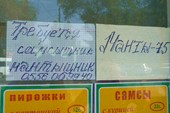 Требуется
самсышник
мантышник
Манты-75
пирожки
самсы